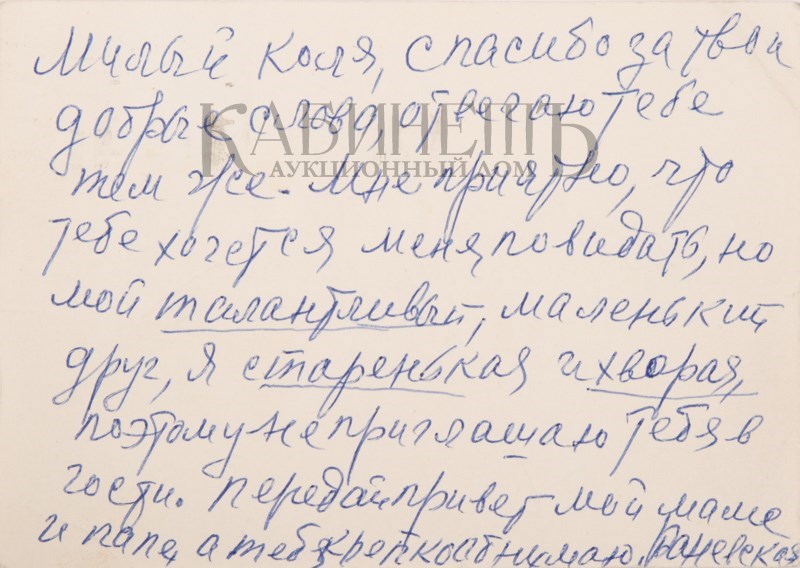 Милый Коля, спасибо за твои
добрые слова, отвечаю тебе
КАБИНЕТЪ
АУКЦИОННЫЙ ДОМ
тем же. Мне приятно, что
тебе хочется меня повидать, но
мой талантливый, маленький
друг, я старенькая и хворая,
поэтому не приглашаю тебя в
гости. Передай привет мой маме
и папе, а тебя крепко обнимаю. Раневская